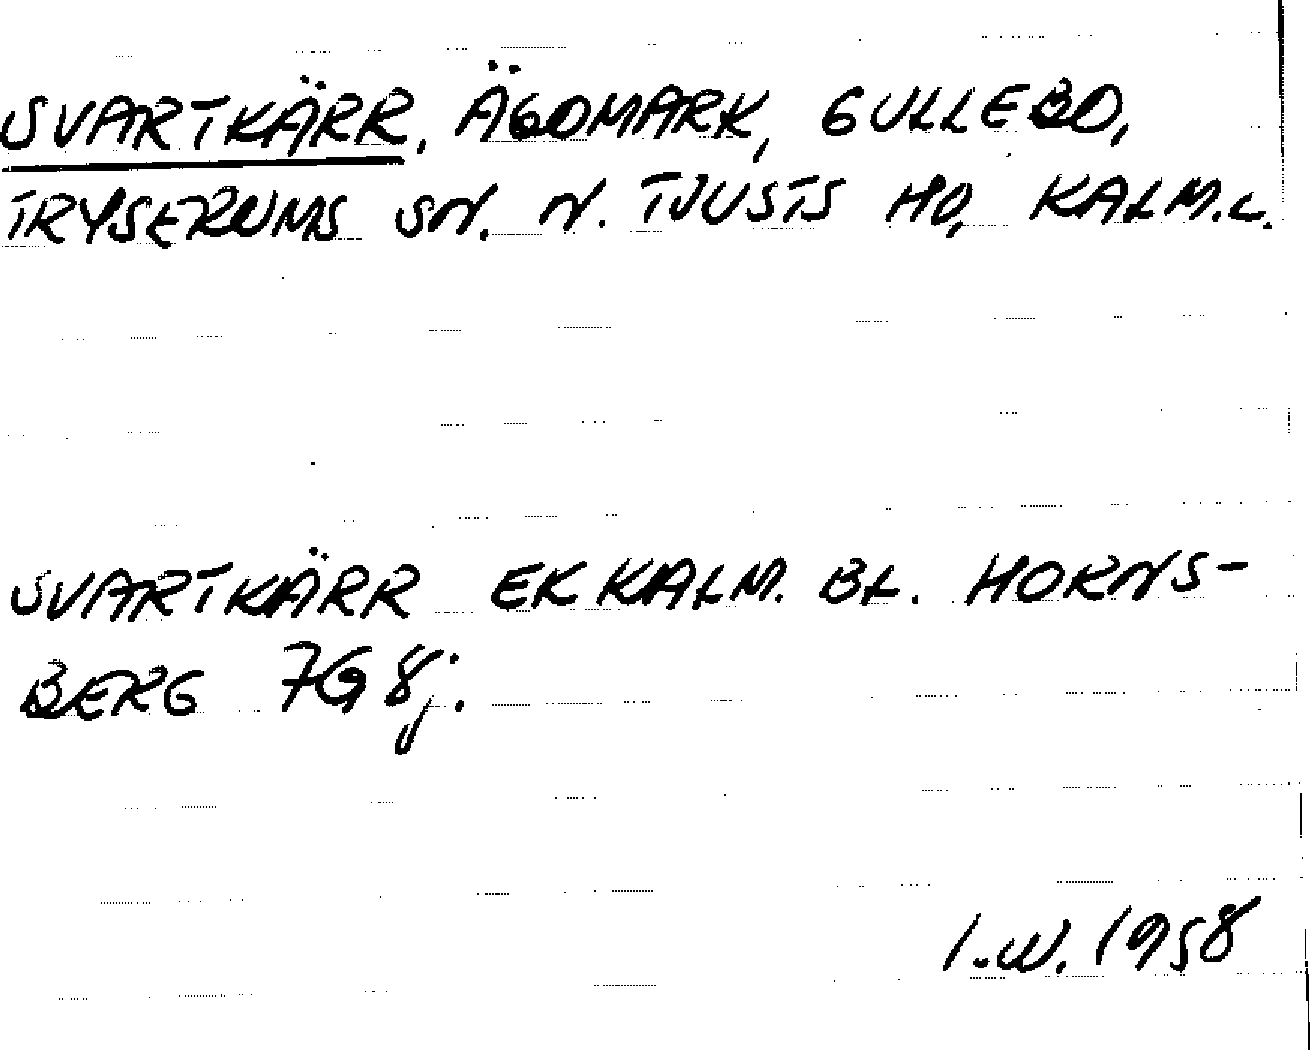 SVARTKÄRR, ÄGOMARK, GULLEBO,
TRYSERUMS SN. N. TJUSTS HD, KALM.L.
SVARTKÄRR EK KALM. BL. HORNS-
BERG 7G 8j.
I.W. 1958